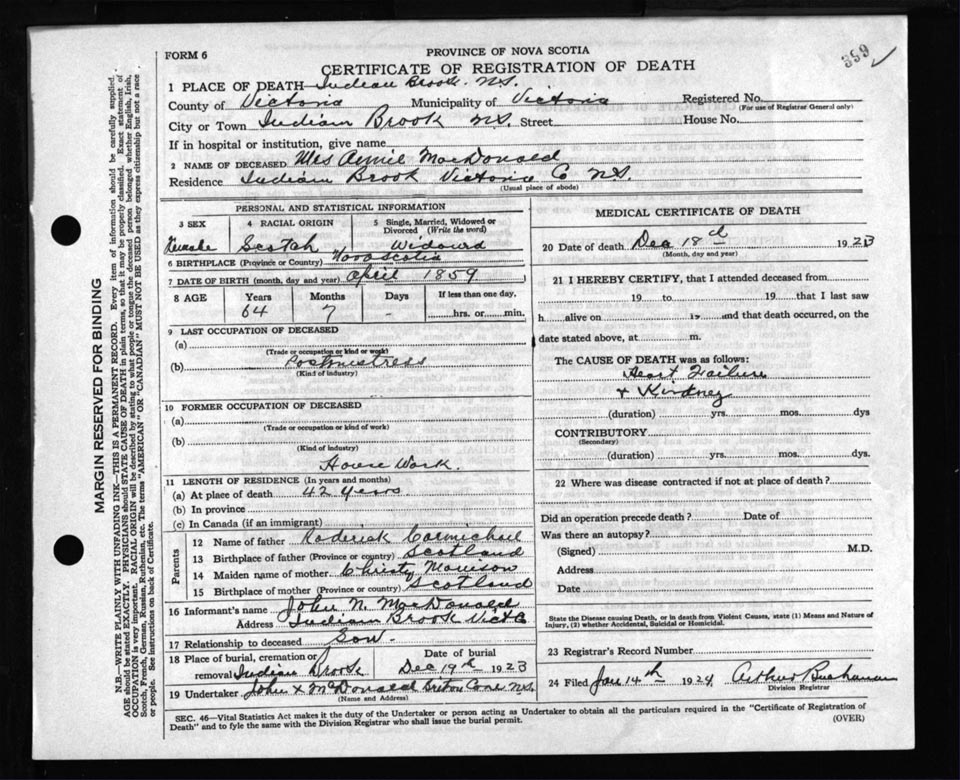 359
FORM 6
PROVINCE OF NOVA SCOTIA
CERTIFICATE OF REGISTRATION OF DEATH
1 PLACE OF DEATH Indian Brook. N.S.
County of Victoria Municipality of Victoria Registered No.
(For use of Registrar General only)
City or Town Indian Brook N.S. Street House No.
If in hospital or institution, give name
2 NAME OF DECEASED Mrs Annie MacDonald
Residence Indian Brook Victoria Co N.S.
(Usual place of abode)
PERSONAL AND STATISTICAL INFORMATION
3 SEX 4 RACIAL ORIGIN 5 Single, Married, Widowed or Divorced (Write the word)
Female Scotch Widowed
6 BIRTHPLACE (Province or Country) Nova Scotia
7 DATE OF BIRTH (month, day and year) April 1859
8 AGE Years Months Days If less than one day,
64 7 - hrs. or min.
9 LAST OCCUPATION OF DECEASED
(a)
(Trade or occupation or kind or work)
(b) Postmistress
(Kind of industry)
10 FORMER OCCUPATION OF DECEASED
(a)
(Trade or occupation or kind of work)
(b)
(Kind of industry)
House Work.
11 LENGTH OF RESIDENCE (In years and months)
(a) At place of death 42 years.
(b) In province
(c) In Canada (if an immigrant)
Parents
12 Name of father Roderick Carmichael
13 Birthplace of father (Province or country) Scotland
14 Maiden name of mother Christy Morrison
15 Birthplace of mother (Province or country) Scotland
16 Informant's name John N. MacDonald
Address Indian Brook Vict Co
17 Relationship to deceased Son.
18 Place of burial, cremation or removal Indian Brook Date of burial Dec 19th 1923
19 Undertaker John X McDonald Breton Cove N.S.
(Name and Address)
MEDICAL CERTIFICATE OF DEATH
20 Date of death Dec 18th 1923
(Month, day and year)
21 I HEREBY CERTIFY, that I attended deceased from
19 to 19 that I last saw
h alive on 19 and that death occurred, on
date stated above, at m.
The CAUSE OF DEATH was as follows:
Heart Failure
+ Kindney
(duration) yrs. mos. dys
CONTRIBUTORY
(Secondary)
(duration) yrs. mos. dys.
22 Where was disease contracted if not at place of death?
Did an operation precede death? Date of
Was there an autopsy?
(Signed) M.D.
Address
Date
State the Disease causing Death, or in death from Violent Causes, state (1) Means and Nature of
Injury, (2) whether Accidental, Suicidal or Homicidal.
23 Registrar's Record Number
24 Filed Jan 14th 1924 Arthur Buchanan
Division Registrar
SEC. 46—Vital Statistics Act makes it the duty of the Undertaker or person acting as Undertaker to obtain all the particulars required in the "Certificate of Registration of
Death" and to fyle the same with the Division Registrar who shall issue the burial permit.
(OVER)
MARGIN RESERVED FOR BINDING
N.B.—WRITE PLAINLY WITH UNFADING INK—THIS IS A PERMANENT RECORD. Every item of information should be carefully supplied.
AGE should be stated EXACTLY. PHYSICIANS should STATE CAUSE OF DEATH in plain terms, so that it may be properly classified. Exact statement of
OCCUPATION is very important. RACIAL ORIGIN will be described by stating to what people or tongue the deceased person belonged whether English, Irish,
Scotch, French, German, Russian, Ruthenian, etc. The terms "AMERICAN" OR "CANADIAN" MUST NOT BE USED as they express citizenship but not a race
or people. See instructions on back of Certificate.